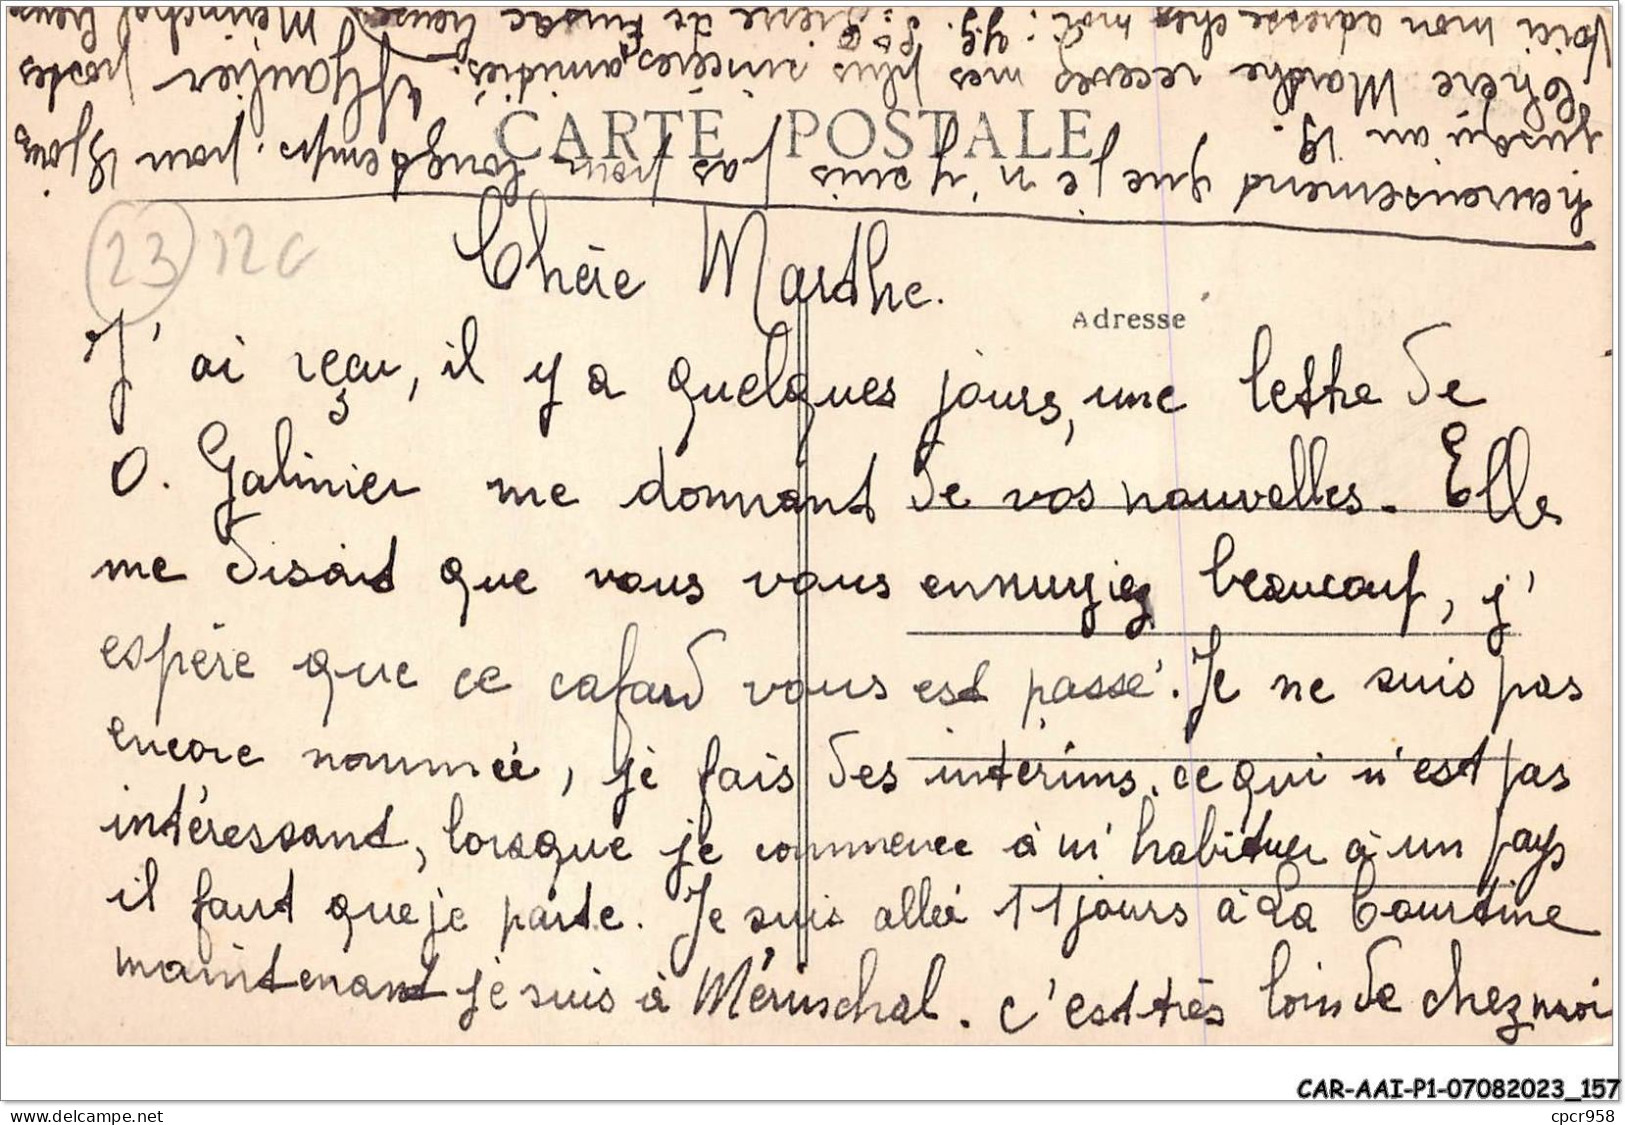 CARTE POSTALE
23 12c
Adresse
Chère Marthe.
J'ai reçu, il y a quelques jours, une lettre de
O. Galinier me donnant de vos nouvelles. Elle
me disait que vous vous ennuyiez beaucoup, j'
espère que ce cafard vous est passé. Je ne suis pas
encore nommée, je fais des intérims, ce qui n'est pas
intéressant, lorsque je commence à m'habituer à un pays
il faut que je parte. Je suis allée 11 jours à La Courtine
maintenant je suis à Mérinchal. c'est très loin de chez moi
heureusement que je n'y suis pas pour longtemps: pour 8 jours
jusqu'au 19.
Chère Marthe recevez mes plus sincères amitiés. Gaulier postes
Voici mon adresse chez moi: y.g. St Pierre de Fursac Creuse Mérinchal Creuse
CAR-AAI-P1-07082023_157
www.delcampe.net
cpcr958